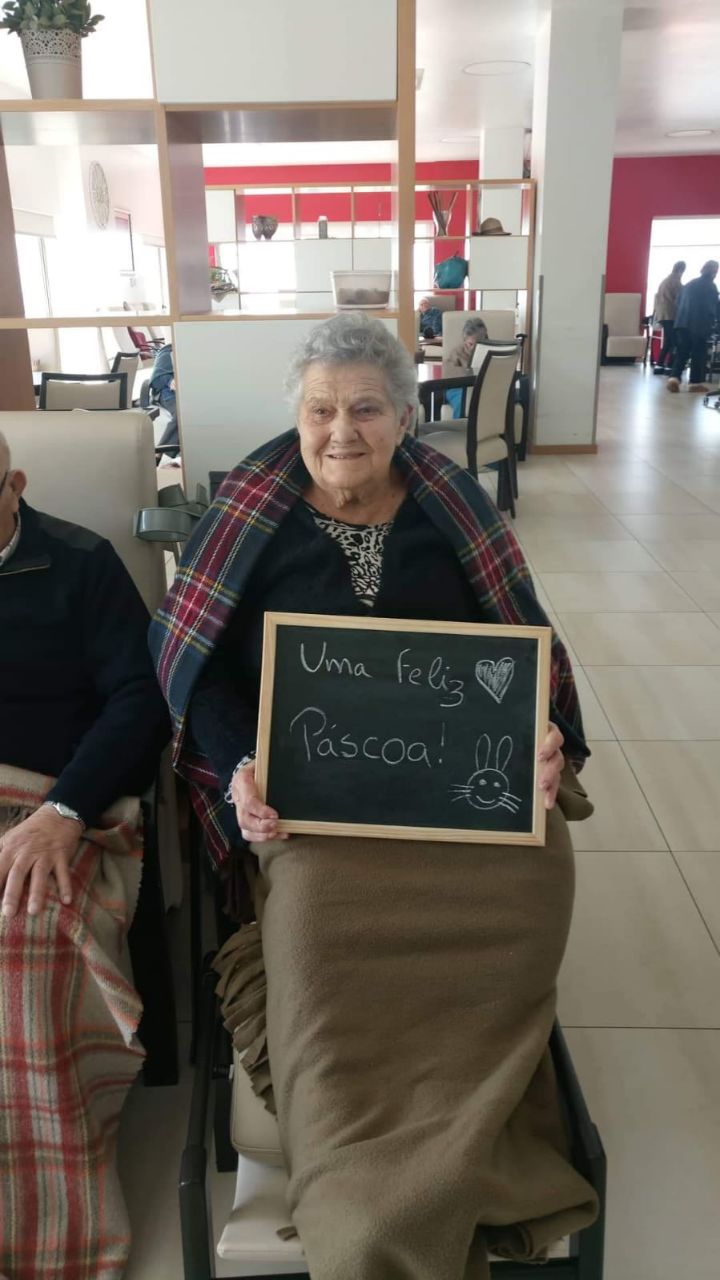 Uma Feliz
Páscoa!